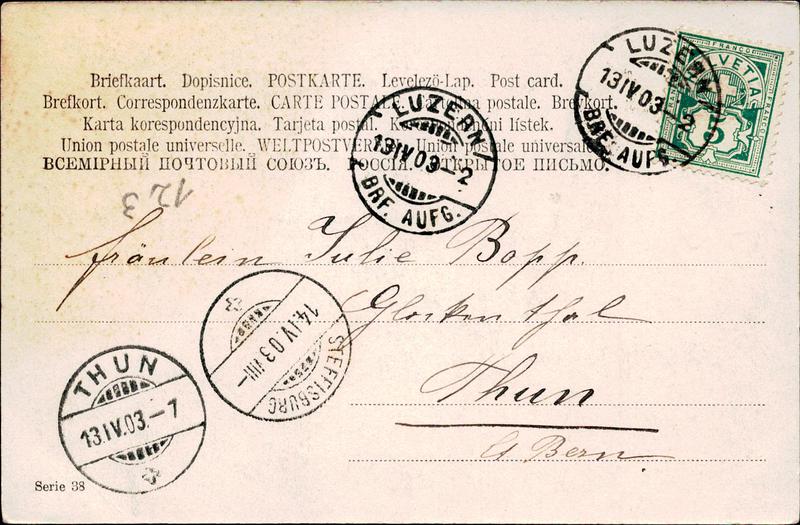 Briefkaart. Dopisnice. POSTKARTE. Levelező-Lap. Post card.
Brefkort. Correspondenzkarte. CARTE POSTALE. postale. Brevkort.
Karta korespondencyjna. Tarjeta postal. lístek.
Union postale universelle. WELTPOSTVEREIN Union postale universale
ВСЕМІРНЫЙ ПОЧТОВЫЙ СОЮЗЪ. РОССІЯ. ОТКРЫТОЕ ПИСЬМО.
LUZERN
13.IV.03.-2
BRF. AUFG.
LUZERN
13.IV.03.-2
BRF. AUFG.
FRANCO
HELVETIA
5
123
Fräulein Julie Bopp.
Glockenthal
Thun
Bern
14.IV.03.VIII-
STEFFISBURG
THUN
13.IV.03.-7
Serie 38